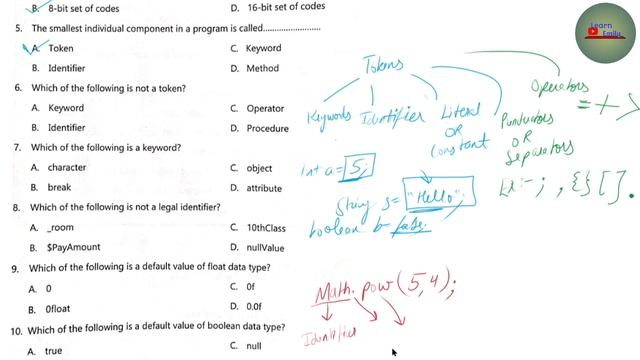 B. 8-bit set of codes
D. 16-bit set of codes
5. The smallest individual component in a program is called........................
A. Token
C. Keyword
B. Identifier
D. Method
6. Which of the following is not a token?
A. Keyword
C. Operator
B. Identifier
D. Procedure
7. Which of the following is a keyword?
A. character
C. object
B. break
D. attribute
8. Which of the following is not a legal identifier?
A. _room
C. 10thClass
B. $PayAmount
D. nullValue
9. Which of the following is a default value of float data type?
A. 0
C. 0f
B. 0float
D. 0.0f
10. Which of the following is a default value of boolean data type?
A. true
C. null
Learn
Emily
Tokens
Keywords
Identifier
Literal
OR
Constant
Punctuators
OR
Separators
Operators
= + >
Int a = 5;
String s = "Hello";
boolean b = false;
Ex:- ; , { } [ ] .
Math.pow(5,4);
Identifier